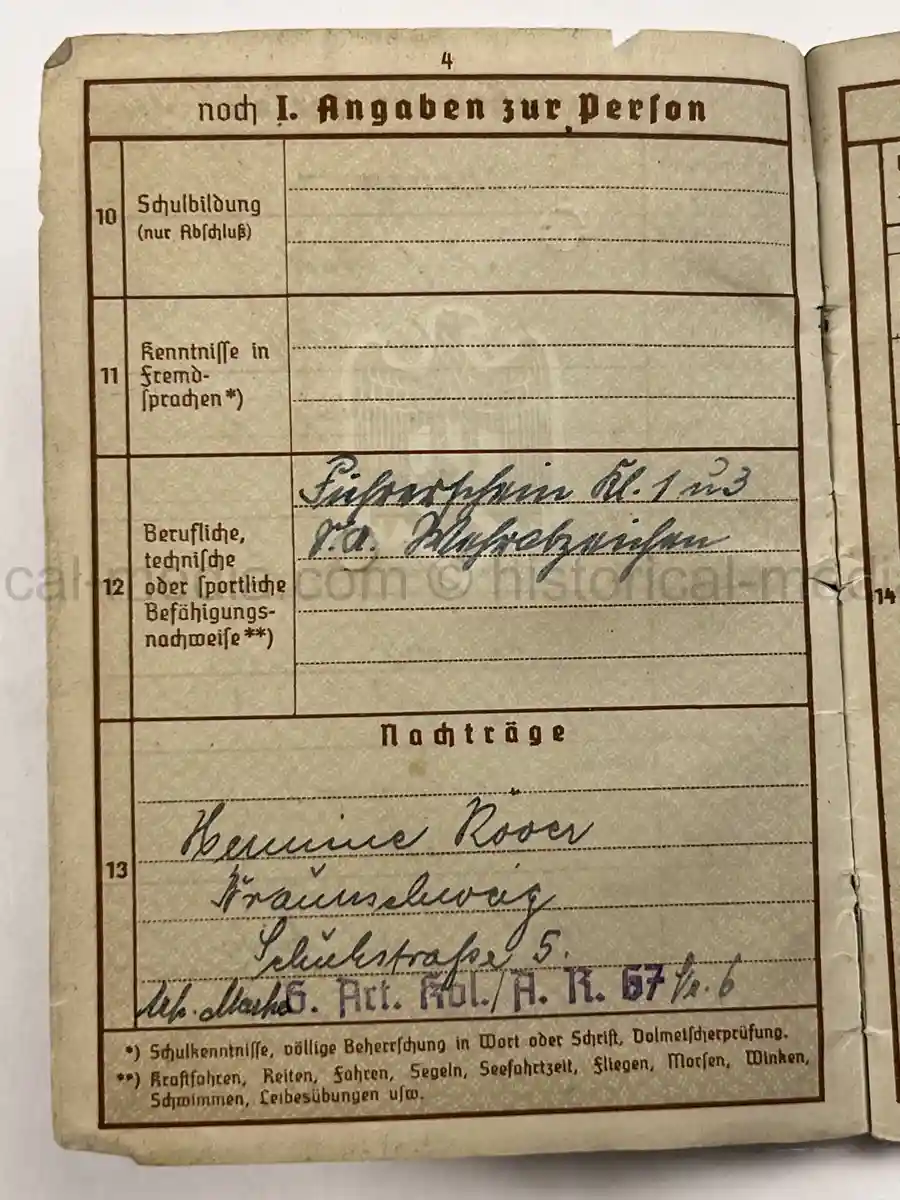 4
noch I. Angaben zur Person
10
Schulbildung
(nur Abschluß)
11
Kenntnisse in
Fremd-
sprachen*)
12
Berufliche,
technische
oder sportliche
Befähigungs-
nachweise**)
Führerschein Kl. 1 u 3
S.A. Wehrabzeichen
Nachträge
13
Hermine Röver
Braunschweig
Schuhstraße 5.
6. Art. Kol./A. R. 67
*) Schulkenntnisse, völlige Beherrschung in Wort oder Schrift, Dolmetscherprüfung.
**) Kraftfahren, Reiten, Fahren, Segeln, Seefahrtzeit, Fliegen, Morsen, Winken,
Schwimmen, Leibesübungen usw.
14
.com © historical-med